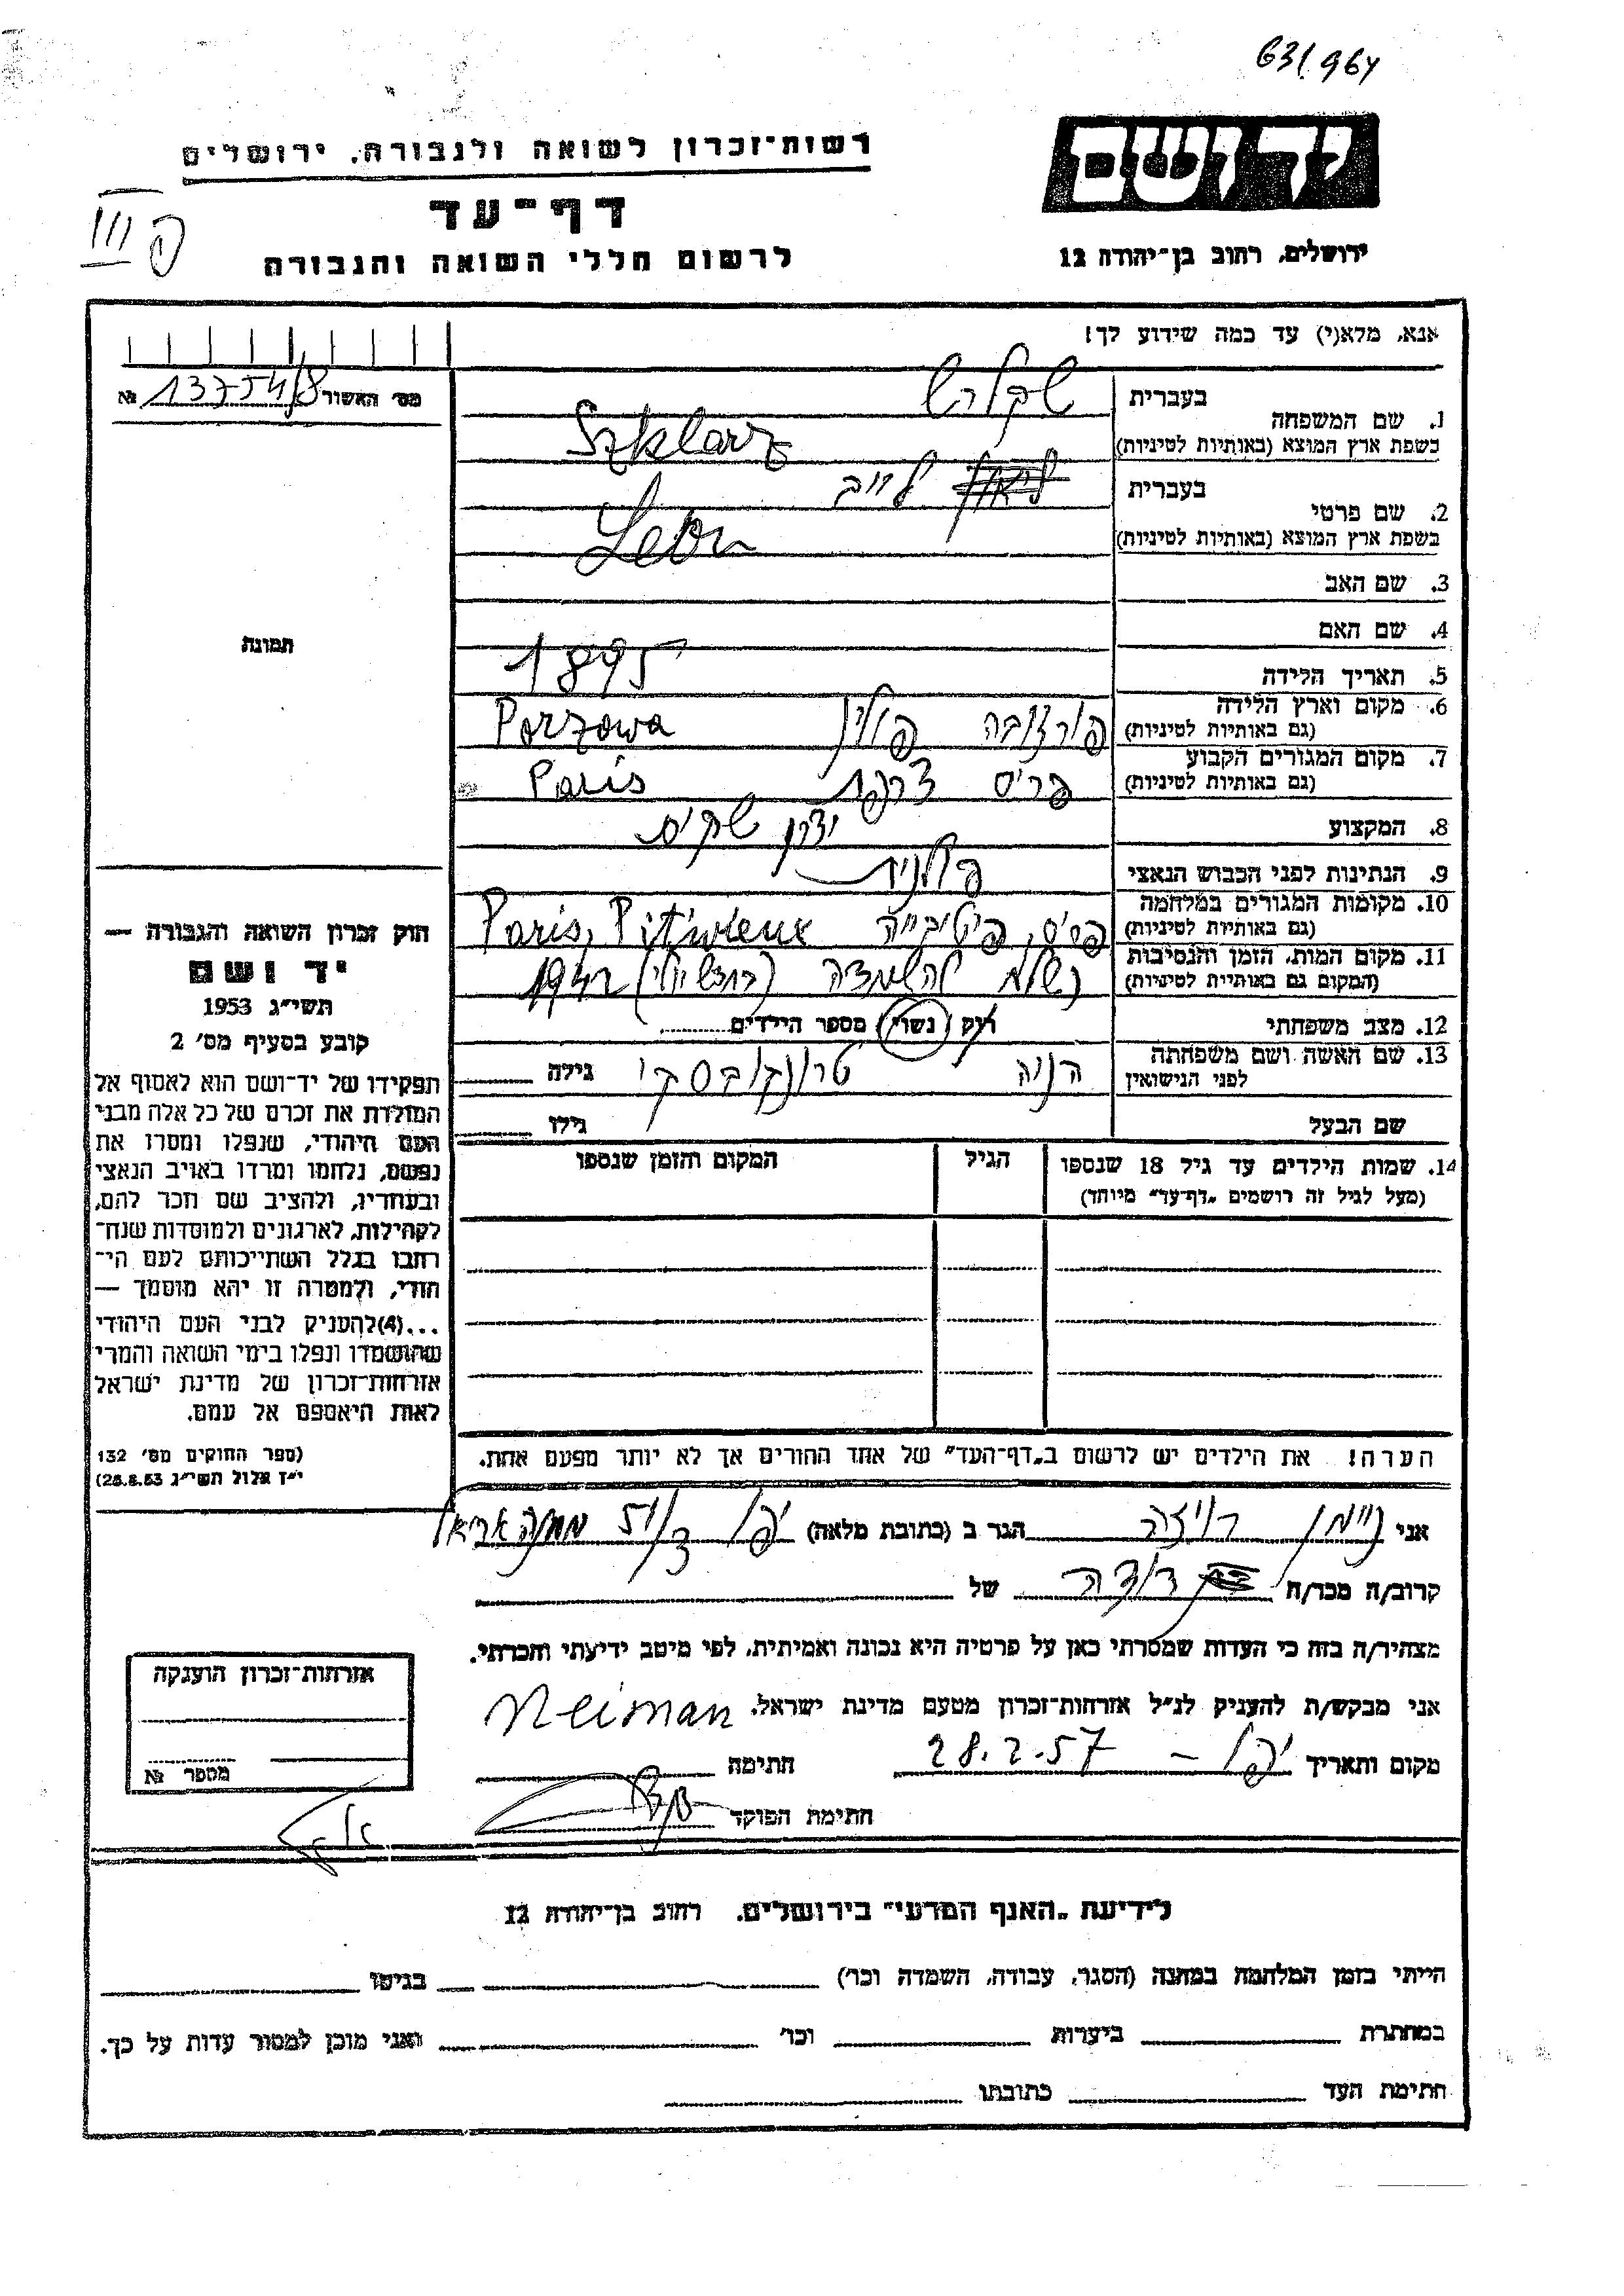 631964
יד ושם
רשות־זכרון לשואה ולגבורה, ירושלים
דף־עד
לרשום חללי השואה והגבורה
ירושלים, רחוב בן־יהודה 12
פ III
אנא, מלא(י) עד כמה שידוע לך!
מס׳ האשור 13754/8 №
1. שם המשפחה
בעברית שקלרש
בשפת ארץ המוצא (באותיות לטיניות) Szklarz
2. שם פרטי
בעברית לייב
בשפת ארץ המוצא (באותיות לטיניות) Leon
3. שם האב
4. שם האם
5. תאריך הלידה 1895
6. מקום וארץ הלידה (גם באותיות לטיניות) פורזובה פולין Porzowa
7. מקום המגורים הקבוע (גם באותיות לטיניות) פריס צרפת Paris
8. המקצוע יצרן שקים
9. הנתינות לפני הכבוש הנאצי פולנית
10. מקומות המגורים במלחמה (גם באותיות לטיניות) פריס, פיטיבייה Paris, Pitiwieux
11. מקום המות, הזמן והנסיבות (המקום גם באותיות לטיניות) נשלח להשמדה (בחדש יולי) 1942
12. מצב משפחתי רוק / נשוי / מספר הילדים
13. שם האשה ושם משפחתה לפני הנישואין הניה טרונקובסקי גילה
שם הבעל גילו
14. שמות הילדים עד גיל 18 שנספו (מעל לגיל זה רושמים „דף־עד” מיוחד) הגיל המקום והזמן שנספו
תמונה
חוק זכרון השואה והגבורה —
יד ושם
תשי״ג 1953
קובע בסעיף מס׳ 2
תפקידו של יד־ושם הוא לאסוף אל
המולדת את זכרם של כל אלה מבני
העם היהודי, שנפלו ומסרו את
נפשם, נלחמו ומרדו באויב הנאצי
ובעוזריו, ולהציב שם וזכר להם,
לקהילות, לארגונים ולמוסדות שנח־
רבו בגלל השתייכותם לעם הי־
הודי, ולמטרה זו יהא מוסמך —
...(4) להעניק לבני העם היהודי
שהושמדו ונפלו בימי השואה והמרי
אזרחות־זכרון של מדינת ישראל
לאות היאספם אל עמם.
(ספר החוקים מס׳ 132
י״ז אלול תשי״ג 28.8.53)
הערה! את הילדים יש לרשום ב„דף־העד” של אחד ההורים אך לא יותר מפעם אחת.
אני ניימן רויזה הגר ב (כתובת מלאה) יפו
קרוב/ה מכר/ה דודה של
מצהיר/ה בזה כי העדות שמסרתי כאן על פרטיה היא נכונה ואמיתית, לפי מיטב ידיעתי והכרתי.
אני מבקש/ת להעניק לנ״ל אזרחות־זכרון מטעם מדינת ישראל. Neiman
מקום ותאריך יפו – 28.2.57 חתימה
חתימת הפוקד
אזרחות־זכרון הוענקה
מספר №
לידיעת „האגף המדעי” בירושלים, רחוב בן־יהודה 12
הייתי בזמן המלחמה במחנה (הסגר, עבודה, השמדה וכו׳) בגיטו
במחתרת ביערות וכו׳ ואני מוכן למסור עדות על כך.
חתימת העד כתובתו